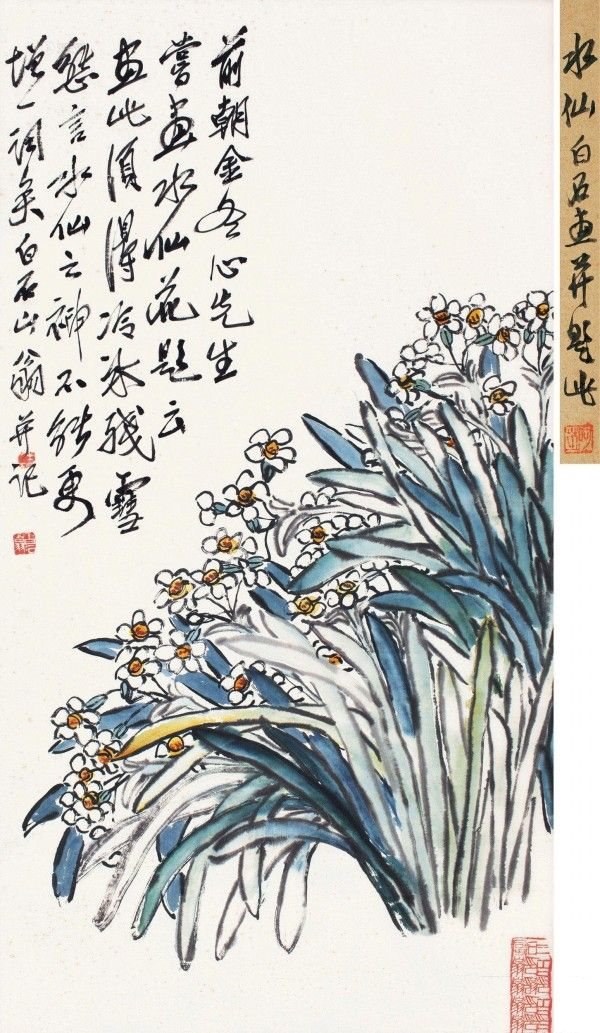 水仙白石畫并題此
前朝金冬心先生
嘗畫水仙花題云
畫此須得冷冰殘雪
態言水仙之神不能更
增一詞矣白石山翁并記